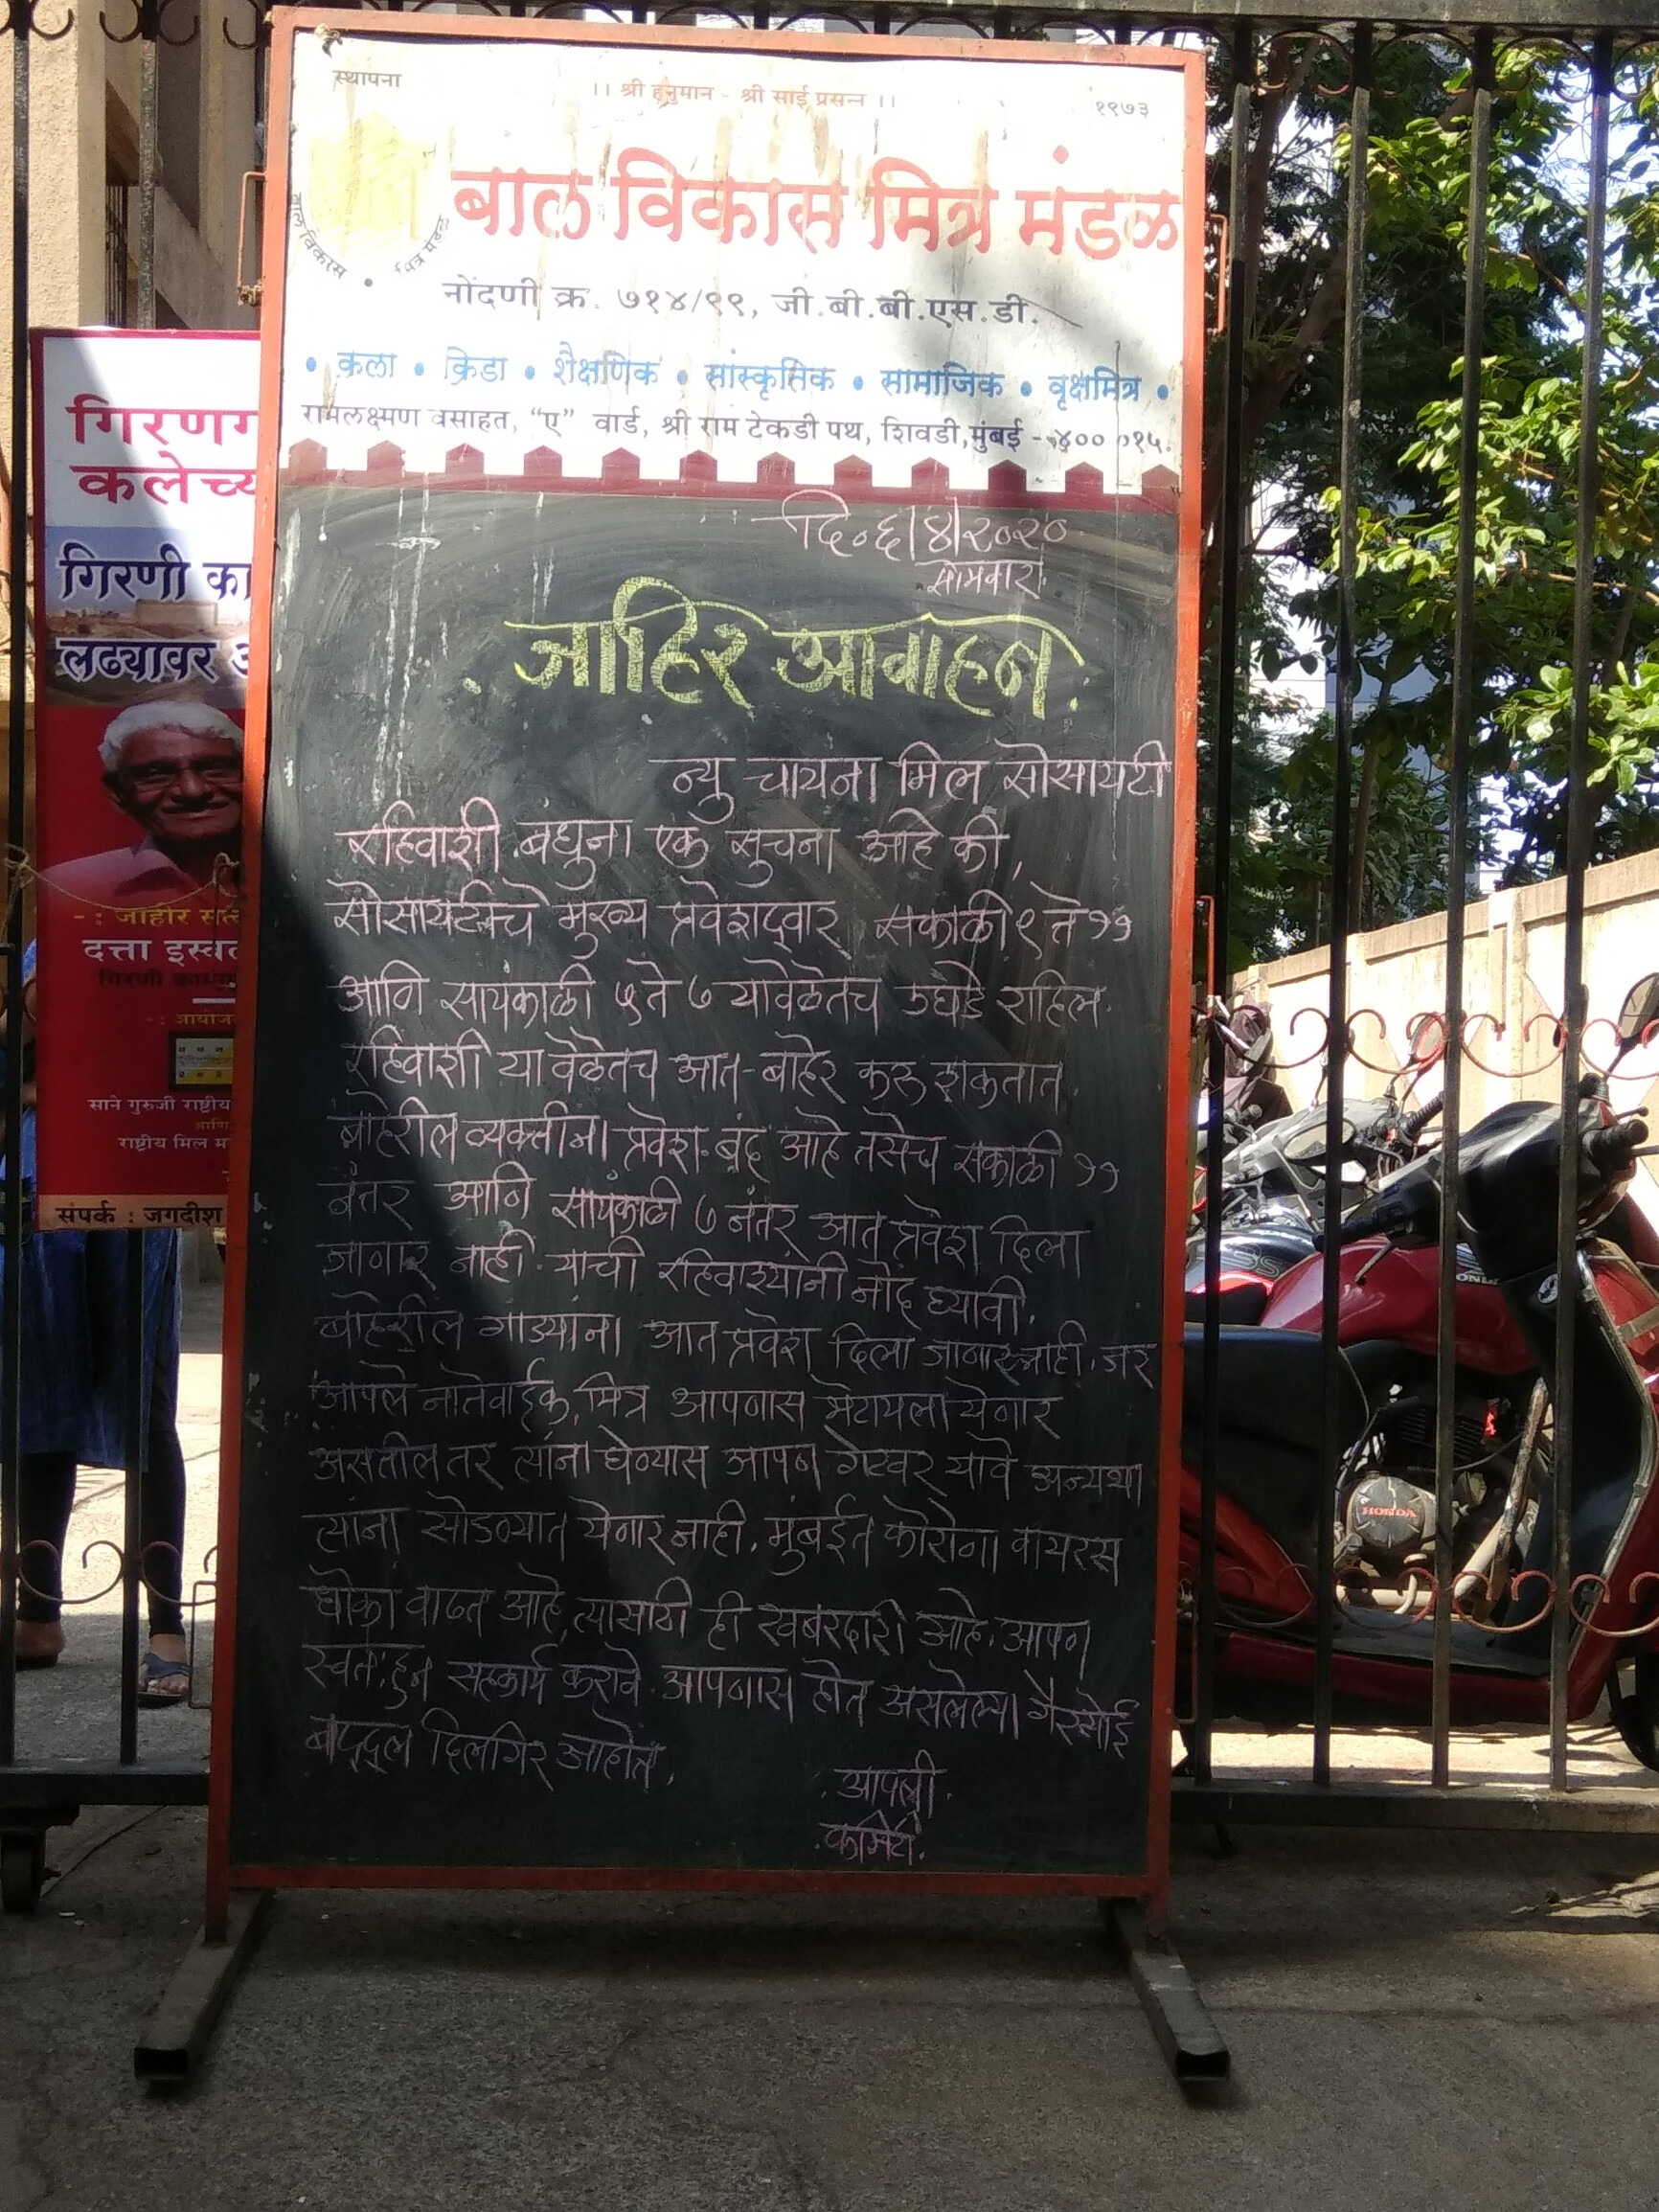 स्थापना
।। श्री हनुमान - श्री साई प्रसन्न ।।
१९७३
बाल विकास मित्र मंडळ
बाल विकास मित्र मंडळ
नोंदणी क्र. ७१४/९९, जी.बी.बी.एस.डी.
• कला • क्रिडा • शैक्षणिक • सांस्कृतिक • सामाजिक • वृक्षमित्र •
रामलक्ष्मण वसाहत, "ए" वार्ड, श्री राम टेकडी पथ, शिवडी, मुंबई - ४०० ०१५.
दि.६/४/२०२०
सोमवार
. जाहिर आवाहन .
न्यु चायना मिल सोसायटी
रहिवाशी बंधुना एक सुचना आहे की,
सोसायटीचे मुख्य प्रवेशद्वार सकाळी ९ ते ११
आणि सायंकाळी ५ ते ७ यावेळेतच उघडे राहिल.
रहिवाशी या वेळेतच आत-बाहेर करु शकतात.
बाहेरील व्यक्तींना प्रवेश बंद आहे तसेच सकाळी ११
नंतर आणि सायंकाळी ७ नंतर आत प्रवेश दिला
जाणार नाही. याची रहिवाश्यांनी नोंद घ्यावी.
बाहेरील गाड्यांना आत प्रवेश दिला जाणार नाही. जर
आपले नातेवाईक, मित्र आपणास भेटायला येणार
असतील तर त्यांना घेण्यास आपण गेटवर यावे अन्यथा
त्यांना सोडण्यात येणार नाही. मुंबईत कोरोना वायरस
धोका वाढत आहे, त्यासाठी ही खबरदारी आहे. आपण
स्वतःहुन सहकार्य करावे. आपणास होत असलेल्या गैरसोई
बद्दल दिलगिर आहोत.
आपली
कमिटी.
गिरणग
कलेच्य
गिरणी का
लढ्यावर
- : जाहीर सत्
दत्ता इस्वल
गिरणी कामगा
-: आयोज
साने गुरुजी राष्ट्रीय
आणि
राष्ट्रीय मिल म
संपर्क : जगदीश
HONDA